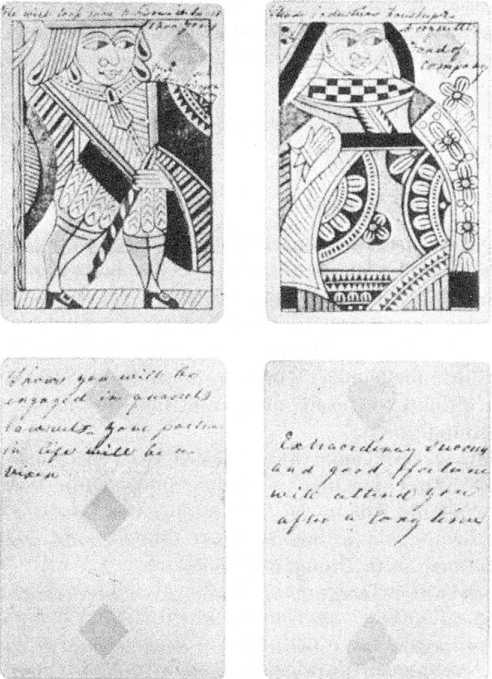 He will
than good
Shows industrious
fond of
company
Shows you will be
engaged in quarrels
lawsuits. Your partner
in life will be a
vixen
Extraordinary success
and good fortune
will attend you
after a long time